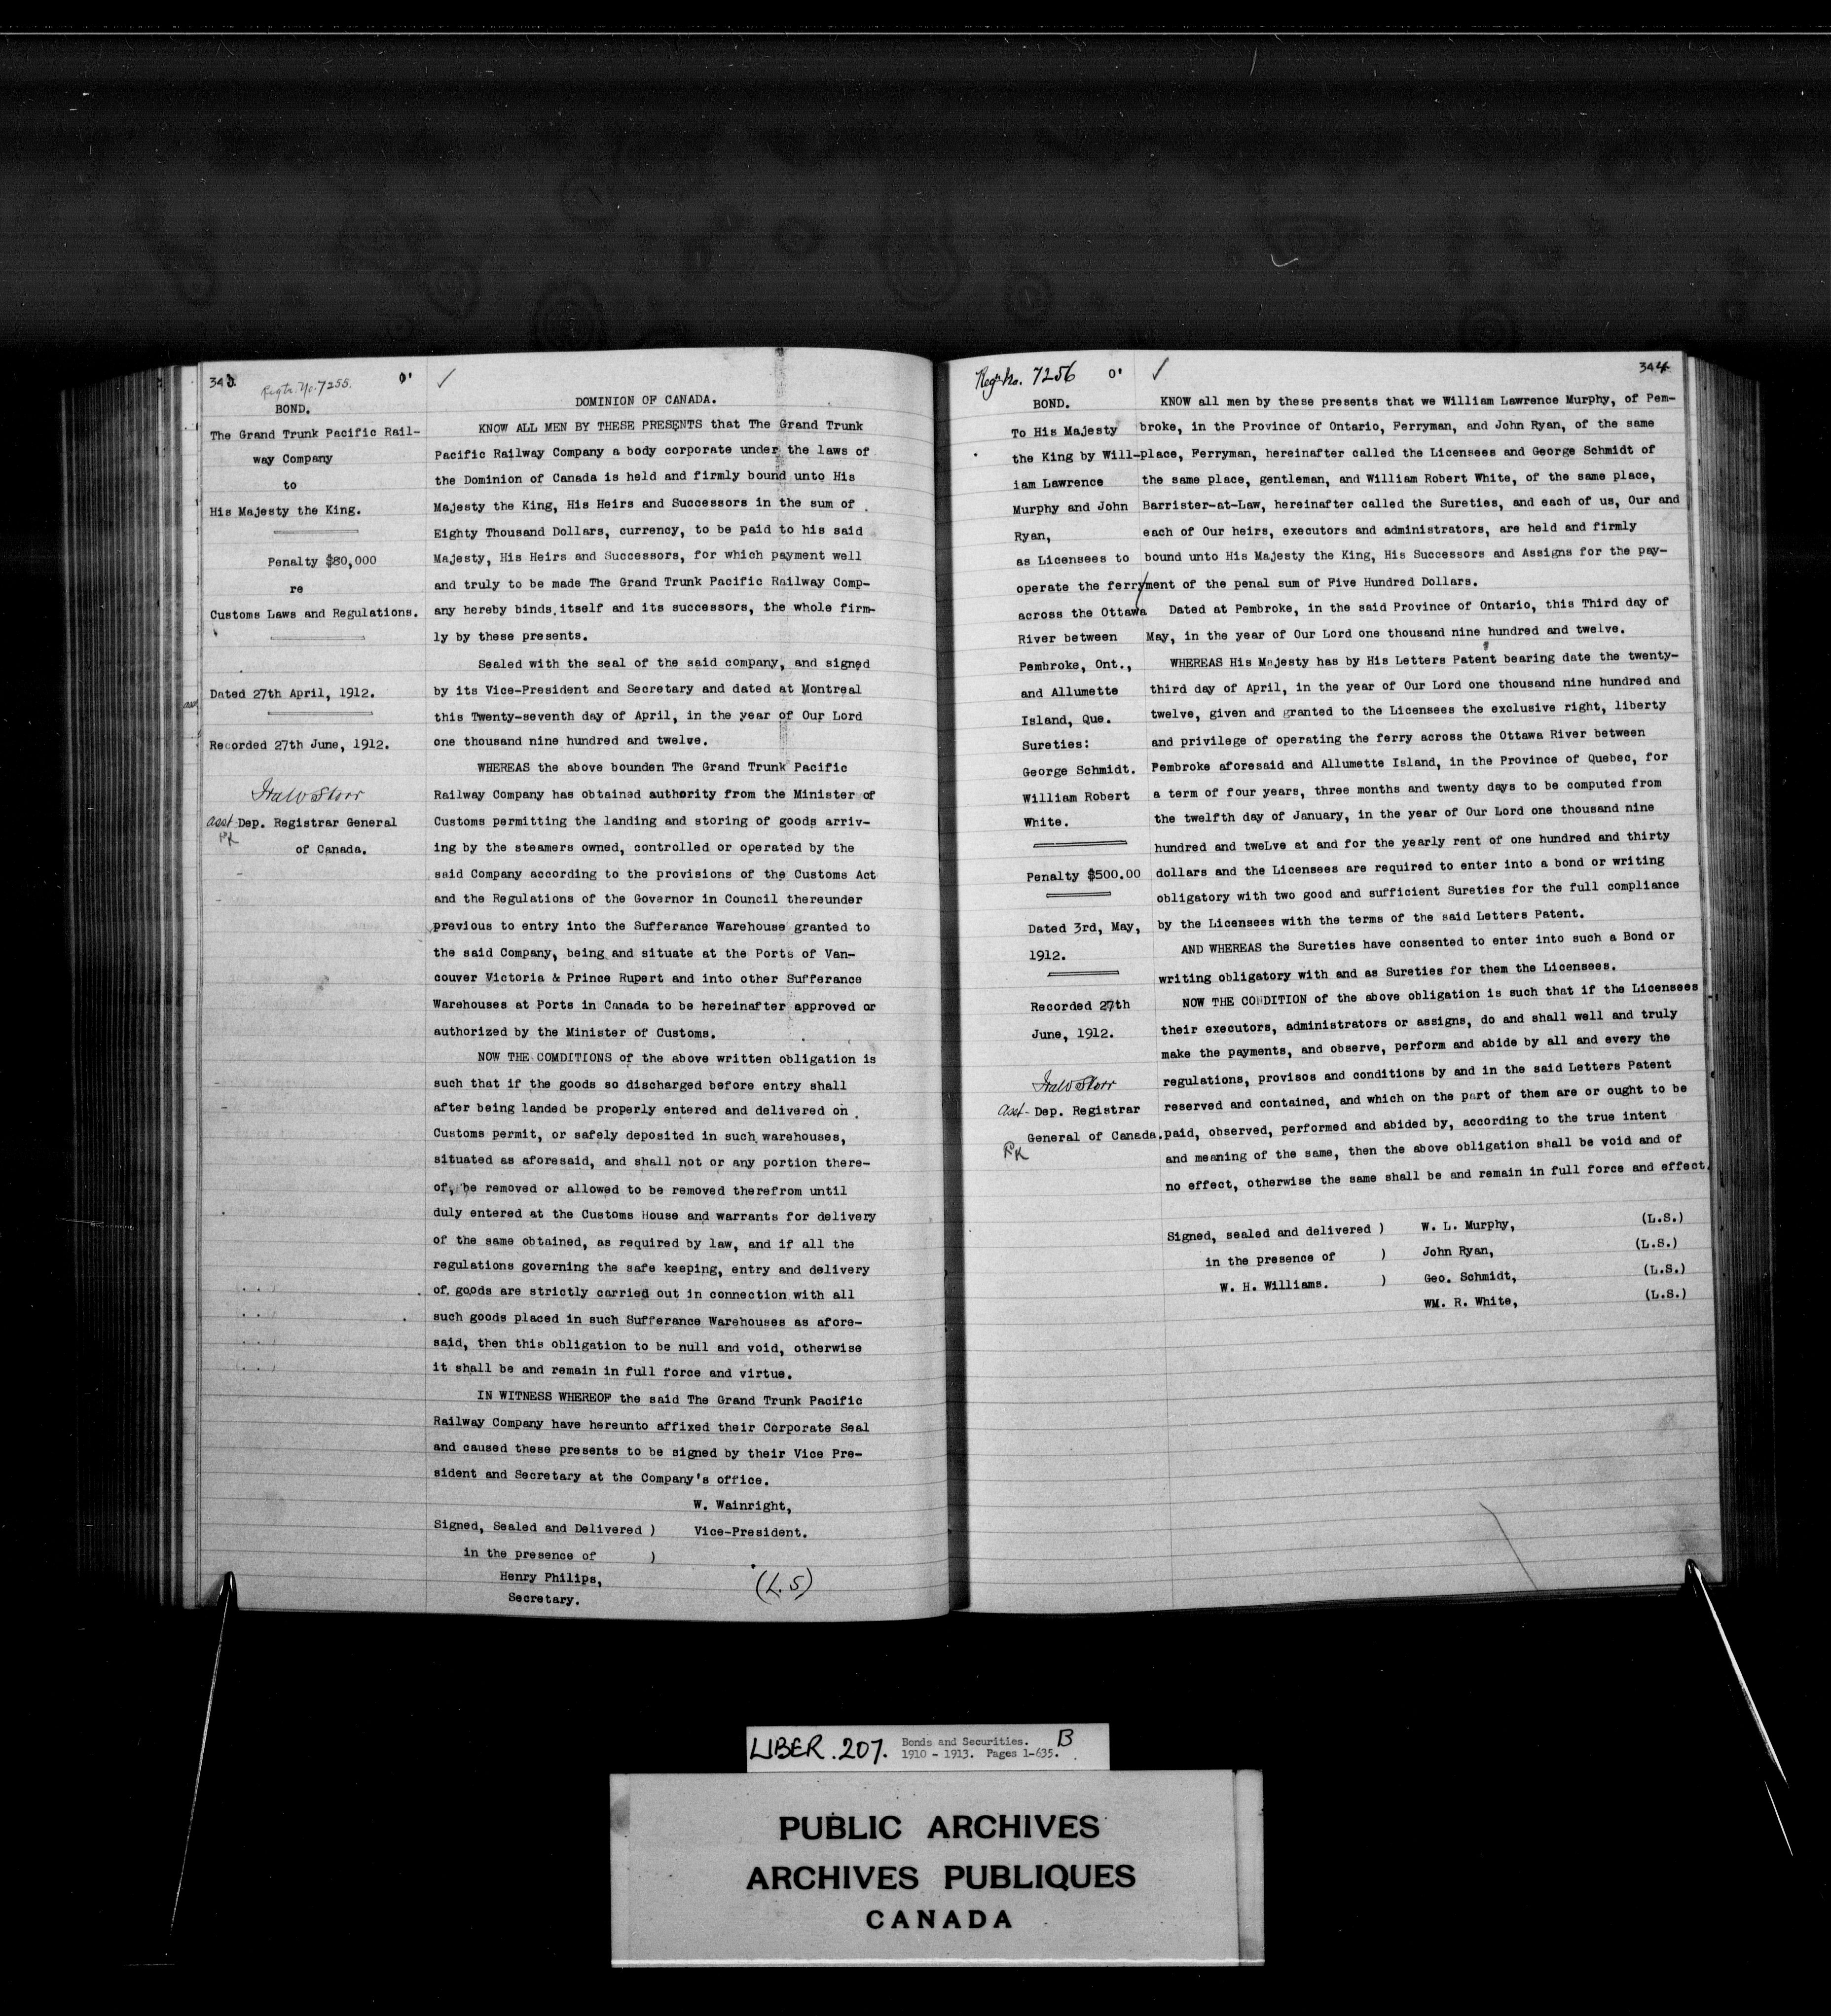 343.
Regtr. No. 7255.
BOND.
The Grand Trunk Pacific Rail-
way Company
to
His Majesty the King.
Penalty $80,000
re
Customs Laws and Regulations.
Dated 27th April, 1912.
Recorded 27th June, 1912.
Asst Dep. Registrar General
of Canada.
DOMINION OF CANADA.
KNOW ALL MEN BY THESE PRESENTS that The Grand Trunk
Pacific Railway Company a body corporate under the laws of
the Dominion of Canada is held and firmly bound unto His
Majesty the King, His Heirs and Successors in the sum of
Eighty Thousand Dollars, currency, to be paid to his said
Majesty, His Heirs and Successors, for which payment well
and truly to be made The Grand Trunk Pacific Railway Comp-
any hereby binds itself and its successors, the whole firm-
ly by these presents.
Sealed with the seal of the said company, and signed
by its Vice-President and Secretary and dated at Montreal
this Twenty-seventh day of April, in the year of Our Lord
one thousand nine hundred and twelve.
WHEREAS the above bounden The Grand Trunk Pacific
Railway Company has obtained authority from the Minister of
Customs permitting the landing and storing of goods arriv-
ing by the steamers owned, controlled or operated by the
said Company according to the provisions of the Customs Act
and the Regulations of the Governor in Council thereunder
previous to entry into the Sufferance Warehouse granted to
the said Company, being and situate at the Ports of Van-
couver Victoria & Prince Rupert and into other Sufferance
Warehouses at Ports in Canada to be hereinafter approved or
authorized by the Minister of Customs.
NOW THE COMDITIONS of the above written obligation is
such that if the goods so discharged before entry shall
after being landed be properly entered and delivered on
Customs permit, or safely deposited in such warehouses,
situated as aforesaid, and shall not or any portion there-
of, be removed or allowed to be removed therefrom until
duly entered at the Customs House and warrants for delivery
of the same obtained, as required by law, and if all the
regulations governing the safe keeping, entry and delivery
of goods are strictly carried out in connection with all
such goods placed in such Sufferance Warehouses as afore-
said, then this obligation to be null and void, otherwise
it shall be and remain in full force and virtue.
IN WITNESS WHEREOF the said The Grand Trunk Pacific
Railway Company have hereunto affixed their Corporate Seal
and caused these presents to be signed by their Vice Pre-
sident and Secretary at the Company's office.
W. Wainright,
Signed, Sealed and Delivered ) Vice-President.
in the presence of )
Henry Philips,
(L.S)
Secretary.
344
Regtr No. 7256
BOND.
To His Majesty
the King by Will-
iam Lawrence
Murphy and John
Ryan,
as Licensees to
operate the ferry
across the Ottawa
River between
Pembroke, Ont.,
and Allumette
Island, Que.
Sureties:
George Schmidt.
William Robert
White.
Penalty $500.00
Dated 3rd, May,
1912.
Recorded 27th
June, 1912.
Asst- Dep. Registrar
General of Canada.
KNOW all men by these presents that we William Lawrence Murphy, of Pem-
broke, in the Province of Ontario, Ferryman, and John Ryan, of the same
place, Ferryman, hereinafter called the Licensees and George Schmidt of
the same place, gentleman, and William Robert White, of the same place,
Barrister-at-Law, hereinafter called the Sureties, and each of us, Our and
each of Our heirs, executors and administrators, are held and firmly
bound unto His Majesty the King, His Successors and Assigns for the pay-
ment of the penal sum of Five Hundred Dollars.
Dated at Pembroke, in the said Province of Ontario, this Third day of
May, in the year of Our Lord one thousand nine hundred and twelve.
WHEREAS His Majesty has by His Letters Patent bearing date the twenty-
third day of April, in the year of Our Lord one thousand nine hundred and
twelve, given and granted to the Licensees the exclusive right, liberty
and privilege of operating the ferry across the Ottawa River between
Pembroke aforesaid and Allumette Island, in the Province of Quebec, for
a term of four years, three months and twenty days to be computed from
the twelfth day of January, in the year of Our Lord one thousand nine
hundred and tweLve at and for the yearly rent of one hundred and thirty
dollars and the Licensees are required to enter into a bond or writing
obligatory with two good and sufficient Sureties for the full compliance
by the Licensees with the terms of the said Letters Patent.
AND WHEREAS the Sureties have consented to enter into such a Bond or
writing obligatory with and as Sureties for them the Licensees.
NOW THE CONDITION of the above obligation is such that if the Licensees
their executors, administrators or assigns, do and shall well and truly
make the payments, and observe, perform and abide by all and every the
regulations, provisos and conditions by and in the said Letters Patent
reserved and contained, and which on the part of them are or ought to be
paid, observed, performed and abided by, according to the true intent
and meaning of the same, then the above obligation shall be void and of
no effect, otherwise the same shall be and remain in full force and effect.
Signed, sealed and delivered ) W. L. Murphy, (L.S.)
in the presence of ) John Ryan, (L.S.)
W. H. Williams. ) Geo. Schmidt, (L.S.)
WM. R. White, (L.S.)
LIBER. 207. Bonds and Securities. B
1910 - 1913. Pages 1-635.
PUBLIC ARCHIVES
ARCHIVES PUBLIQUES
CANADA